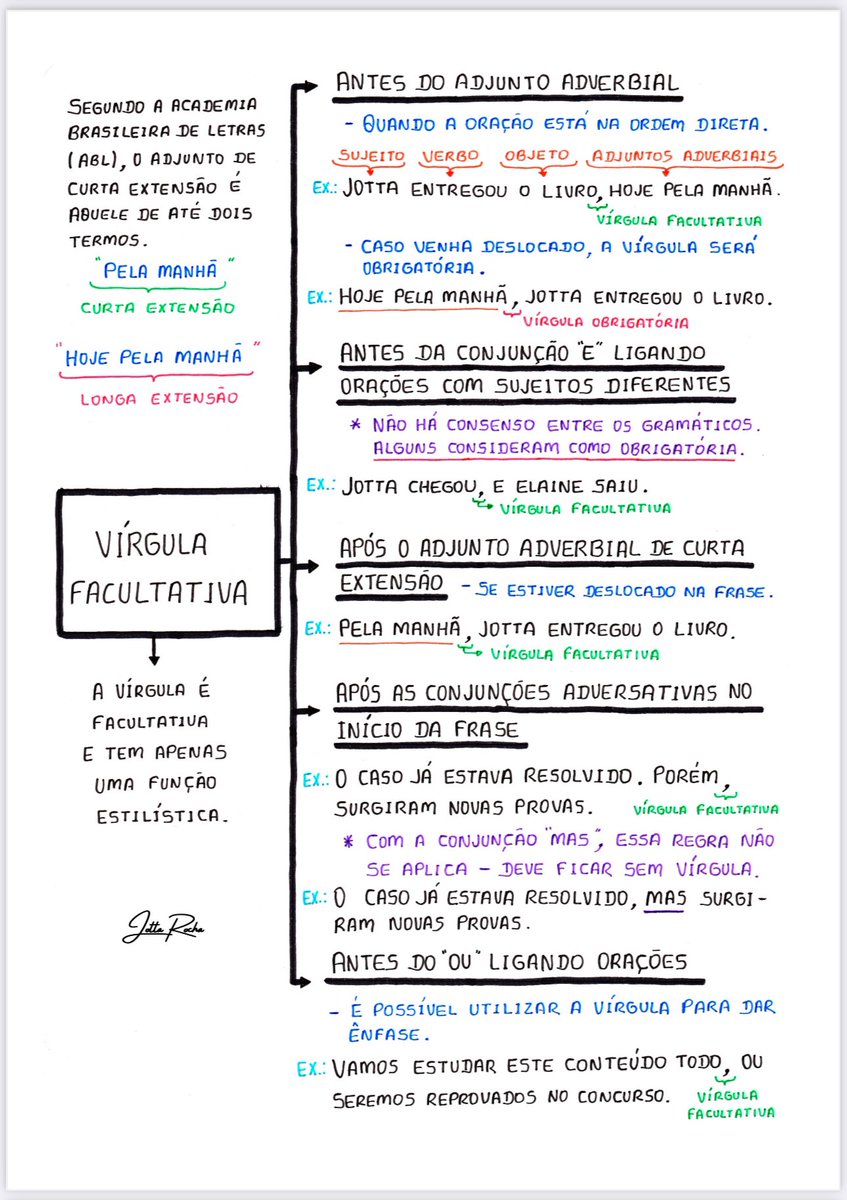 SEGUNDO A ACADEMIA
BRASILEIRA DE LETRAS
(ABL), O ADJUNTO DE
CURTA EXTENSÃO É
AQUELE DE ATÉ DOIS
TERMOS.
"PELA MANHÃ"
CURTA EXTENSÃO
"HOJE PELA MANHÃ"
LONGA EXTENSÃO
VÍRGULA
FACULTATIVA
A VÍRGULA É
FACULTATIVA
E TEM APENAS
UMA FUNÇÃO
ESTILÍSTICA.
Jotta Rocha
ANTES DO ADJUNTO ADVERBIAL
- QUANDO A ORAÇÃO ESTÁ NA ORDEM DIRETA.
SUJEITO VERBO OBJETO ADJUNTOS ADVERBIAIS
EX.: JOTTA ENTREGOU O LIVRO, HOJE PELA MANHÃ.
VÍRGULA FACULTATIVA
- CASO VENHA DESLOCADO, A VÍRGULA SERÁ
OBRIGATÓRIA.
EX.: HOJE PELA MANHÃ, JOTTA ENTREGOU O LIVRO.
VÍRGULA OBRIGATÓRIA
ANTES DA CONJUNÇÃO "E" LIGANDO
ORAÇÕES COM SUJEITOS DIFERENTES
* NÃO HÁ CONSENSO ENTRE OS GRAMÁTICOS.
ALGUNS CONSIDERAM COMO OBRIGATÓRIA.
EX.: JOTTA CHEGOU, E ELAINE SAIU.
VÍRGULA FACULTATIVA
APÓS O ADJUNTO ADVERBIAL DE CURTA
EXTENSÃO - SE ESTIVER DESLOCADO NA FRASE.
EX.: PELA MANHÃ, JOTTA ENTREGOU O LIVRO.
VÍRGULA FACULTATIVA
APÓS AS CONJUNÇÕES ADVERSATIVAS NO
INÍCIO DA FRASE
EX.: O CASO JÁ ESTAVA RESOLVIDO. PORÉM,
SURGIRAM NOVAS PROVAS. VÍRGULA FACULTATIVA
* COM A CONJUNÇÃO "MAS", ESSA REGRA NÃO
SE APLICA - DEVE FICAR SEM VÍRGULA.
EX.: O CASO JÁ ESTAVA RESOLVIDO, MAS SURGI-
RAM NOVAS PROVAS.
ANTES DO "OU" LIGANDO ORAÇÕES
- É POSSÍVEL UTILIZAR A VÍRGULA PARA DAR
ÊNFASE.
EX.: VAMOS ESTUDAR ESTE CONTEÚDO TODO, OU
SEREMOS REPROVADOS NO CONCURSO. VÍRGULA
FACULTATIVA